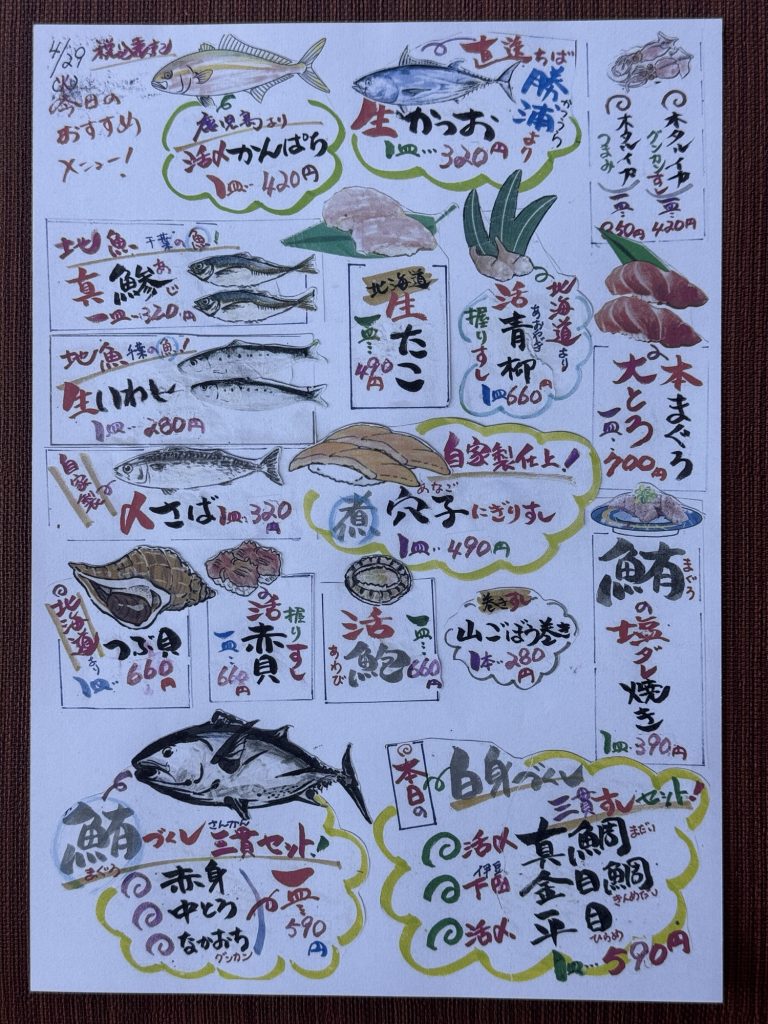 4/29
今日の
おすすめ
メニュー!
鹿児島より
活〆かんぱち
1皿…420円
直送ちば
勝浦より
かつうら
生かつお
1皿…320円
ホタルイカ
グンカンすし
一皿…420円
ホタルイカ
つまみ
地魚 千葉の魚!
真鯵
あじ
一皿…320円
地魚 千葉の魚!
生いわし
1皿…280円
北海道
生たこ
一皿…490円
北海道より
活青柳
あおやぎ
握りすし
1皿660円
本まぐろ
大とろ
一皿…700円
自家製
〆さば 1皿…320円
自家製仕上!
煮穴子にぎりすし
あなご
1皿…490円
北海道より
つぶ貝
1皿…660円
握りすし
活赤貝
一皿…660円
活鮑
あわび
一皿…660円
巻きすし
山ごぼう巻き
1本…280円
鮪の塩ダレ焼き
まぐろ
1皿…390円
鮪づくし三貫セット!
まぐろ
さんかん
赤身
中とろ
なかおち
グンカン
一皿…590円
本日の
白身づくし
三貫すしセット!
活〆 真鯛
まだい
伊豆下田 金目鯛
きんめだい
活〆 平目
ひらめ
1皿…590円